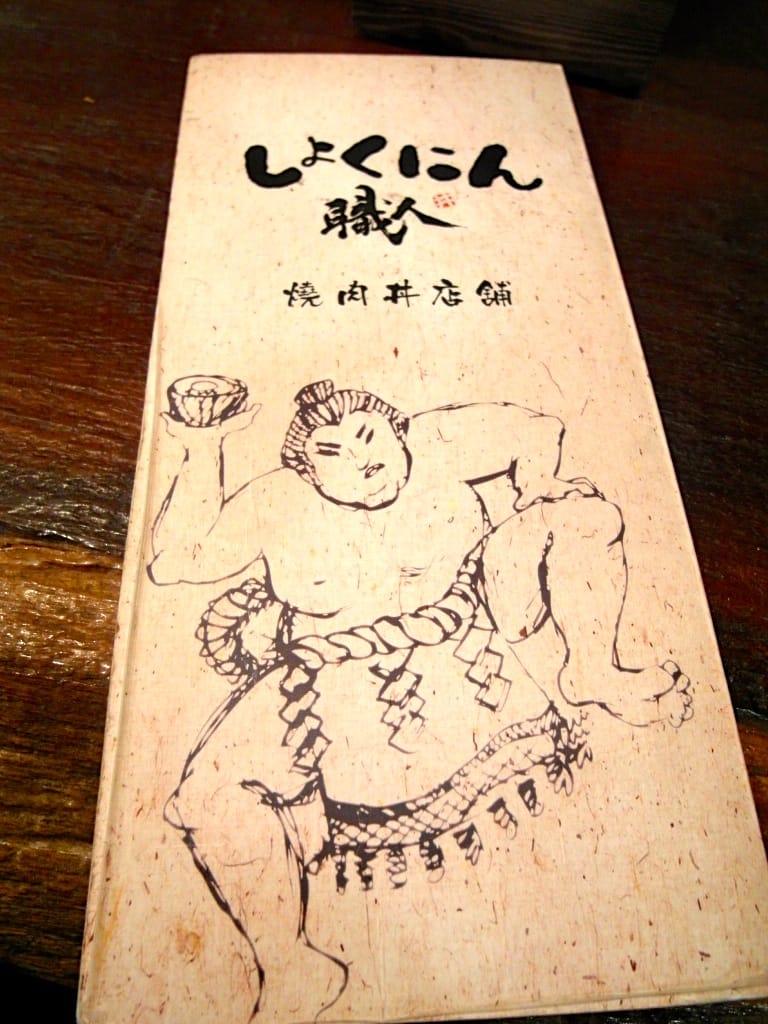 しょくにん
職人
燒肉丼店舖